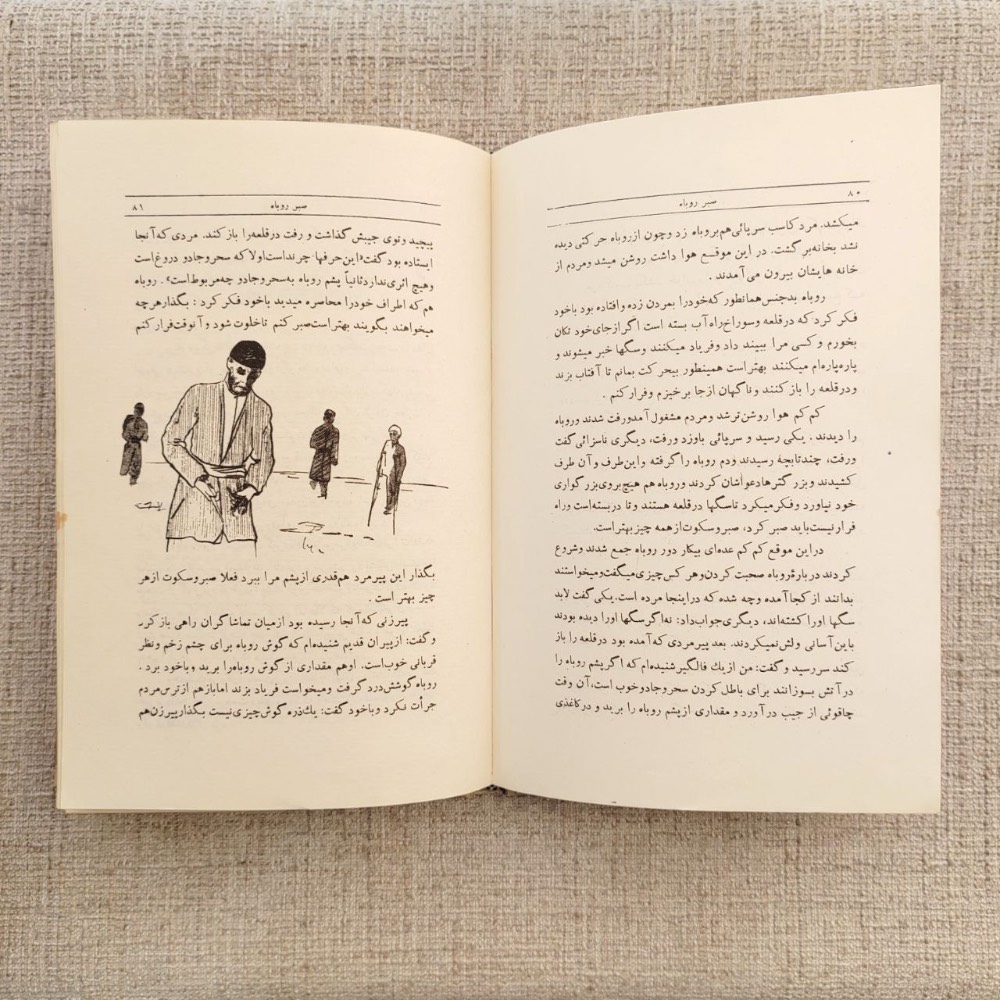 ۸۰
صبر روباه
میکشد. مرد کاسب سرپائی هم بروباه زد و چون از روباه حرکتی دیده
نشد بخانه برگشت. در این موقع هوا داشت روشن میشد و مردم از
خانه هایشان بیرون می آمدند .
روباه بدجنس همانطور که خودرا بمردن زده و افتاده بود باخود
فکر کرد که درقلعه وسوراخ راه آب بسته است اگر ازجای خود تکان
بخورم و کسی مرا ببیند داد و فریاد میکنند وسگها خبر میشوند و
پاره پاره ام میکنند بهتر است همینطور بیحرکت بمانم تا آفتاب بزند
ودرقلعه را باز کنند و ناگهان ازجا برخیزم و فرار کنم .
کم کم هوا روشن تر شد و مردم مشغول آمد ورفت شدند و روباه
را دیدند . یکی رسید و سرپائی باو زد ورفت، دیگری ناسزائی گفت
ورفت، چندتا بچه رسیدند ودم روباه را گرفته واین طرف و آن طرف
کشیدند و بزرگترها دعواشان کردند و روباه هم هیچ بروی بزرگواری
خود نیاورد و فکر میکرد تاسگها درقلعه هستند و تا در بسته است وراه
فرار نیست باید صبر کرد، صبر وسکوت از همه چیز بهتر است.
دراین موقع کم کم عده ای بیکار دور روباه جمع شدند وشروع
کردند دربارهٔ روباه صحبت کردن وهر کس چیزی میگفت ومیخواستند
بدانند از کجا آمده و چه شده که دراینجا مرده است. یکی گفت لابد
سگها اورا کشته اند، دیگری جواب داد: نه اگر سگها اورا دیده بودند
باین آسانی ولش نمیکردند. بعد پیرمردی که آمده بود درقلعه را باز
کند سررسید و گفت: من از یك فالگیر شنیده ام که اگر پشم روباه را
در آتش بسوزانند برای باطل کردن سحر وجادو خوب است، آن وقت
چاقوئی از جیب درآورد و مقداری ازپشم روباه را برید و در کاغذی
صبر روباه
۸۱
پیچید وتوی جیبش گذاشت و رفت درقلعه را باز کند. مردی که آنجا
ایستاده بود گفت «این حرفها چرند است اولا که سحر وجادو دروغ است
وهیچ اثری ندارد ثانیاً پشم روباه به سحر وجادو چه مربوط است» . روباه
هم که اطراف خودرا محاصره میدید باخود فکر کرد : بگذار هرچه
میخواهند بگویند بهتر است صبر کنم تاخلوت شود و آنوقت فرار کنم
بگذار این پیرمرد هم قدری ازپشم مرا ببرد فعلا صبر وسکوت ازهر
چیز بهتر است .
پیرزنی که آنجا رسیده بود ازمیان تماشاگران راهی باز کرد
و گفت: ازپیران قدیم شنیده ام که گوش روباه برای چشم زخم ونظر
قربانی خوب است. اوهم مقداری از گوش روباه را برید وباخود برد .
روباه گوشش درد گرفت ومیخواست فریاد بزند اما باز هم ازترس مردم
جرأت نکرد وباخود گفت: یك ذره گوش چیزی نیست بگذار پیرزن هم